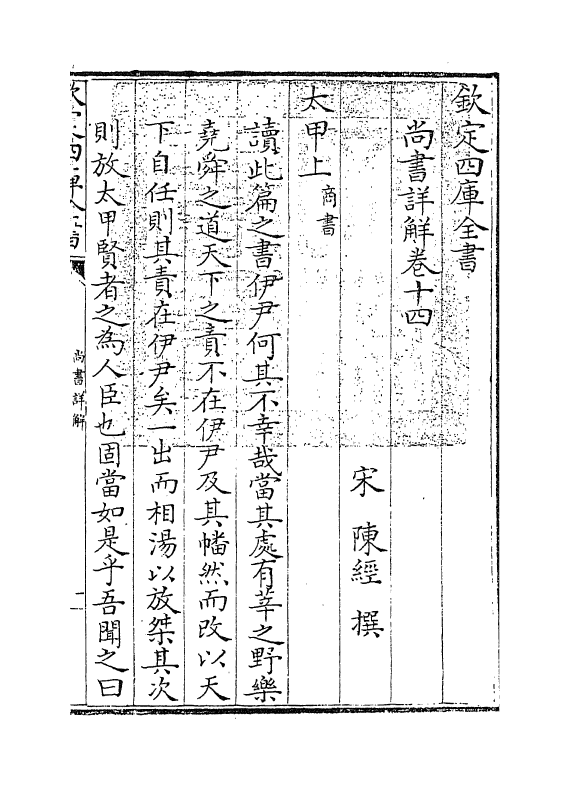 欽定四庫全書
尚書詳解卷十四
宋 陳經 撰
太甲上 商書
讀此篇之書伊尹何其不幸哉當其處有莘之野樂
堯舜之道天下之責不在伊尹及其幡然而改以天
下自任則其責在伊尹矣一出而相湯以放桀其次
則放太甲賢者之為人臣也固當如是乎吾聞之曰
尚書詳解